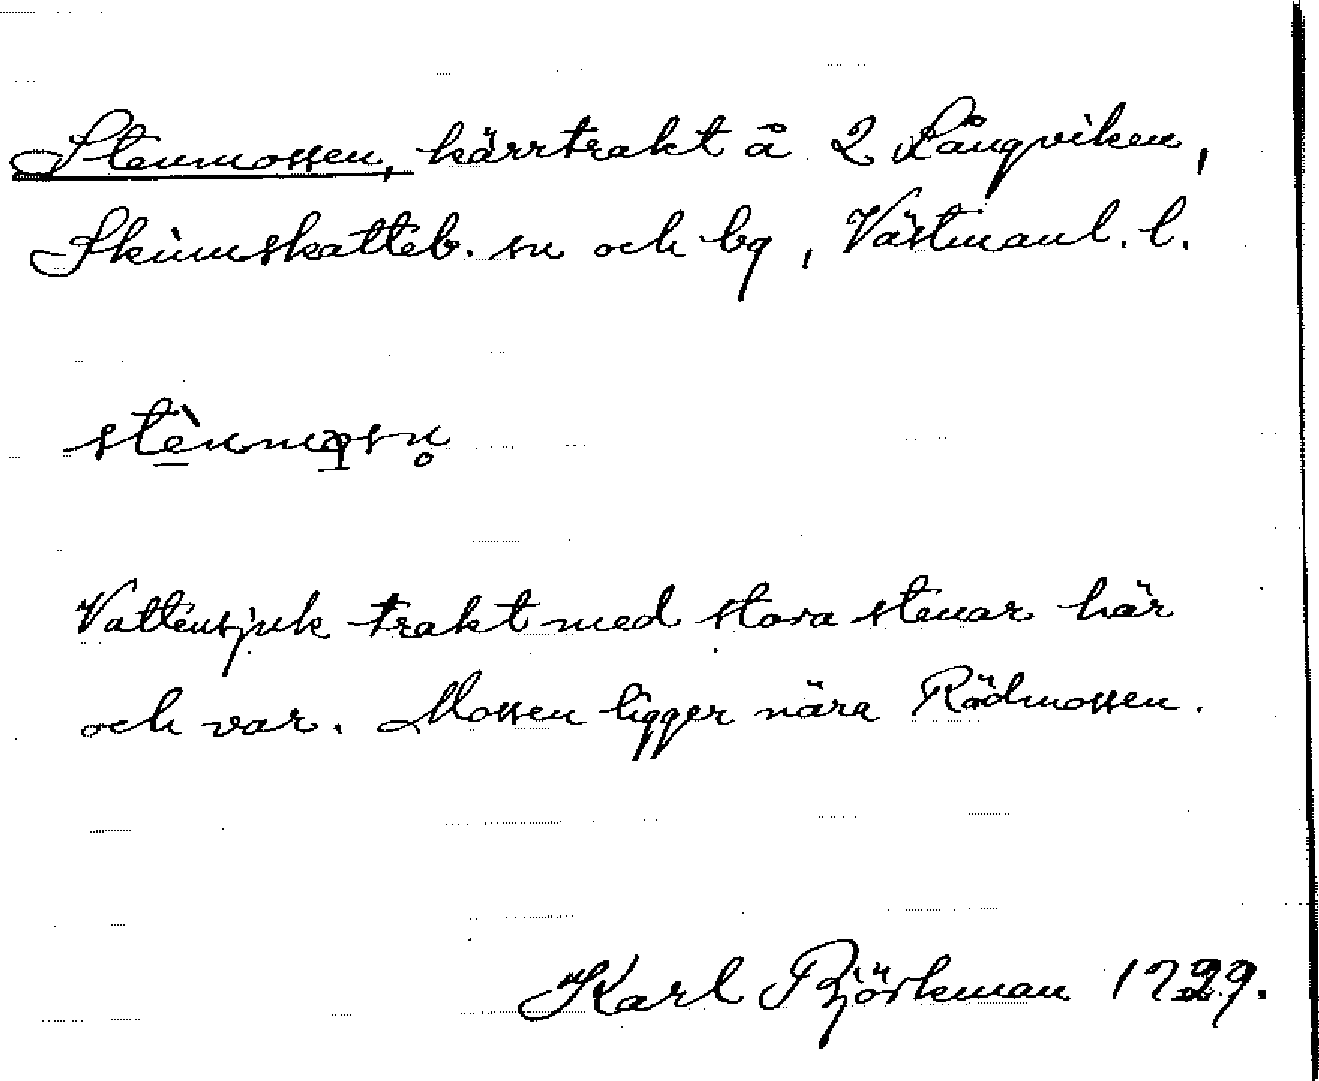 Stenmossen, kärrtrakt å 2 Långviken,
Skinnskatteb. sn och by, Västmanl. l.
stènmosn̥
Vattensjuk trakt med stora stenar här
och var. Mossen ligger nära Rödmossen.
Karl Björkman 1929.